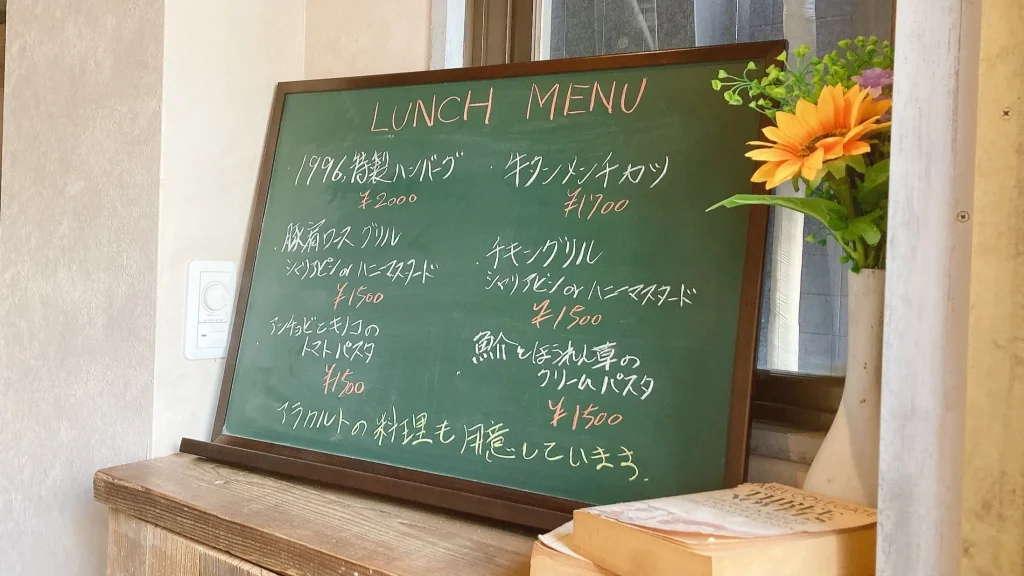 LUNCH MENU
1996.特製ハンバーグ
¥2000
牛タンメンチカツ
¥1700
豚肩ロース グリル
シャリアピン or ハニーマスタード
¥1500
チキングリル
シャリアピン or ハニーマスタード
¥1500
アンチョビとキノコの
トマトパスタ
¥1500
ほうれん草の
クリームパスタ
¥1500
アラカルトの料理も用意しています.